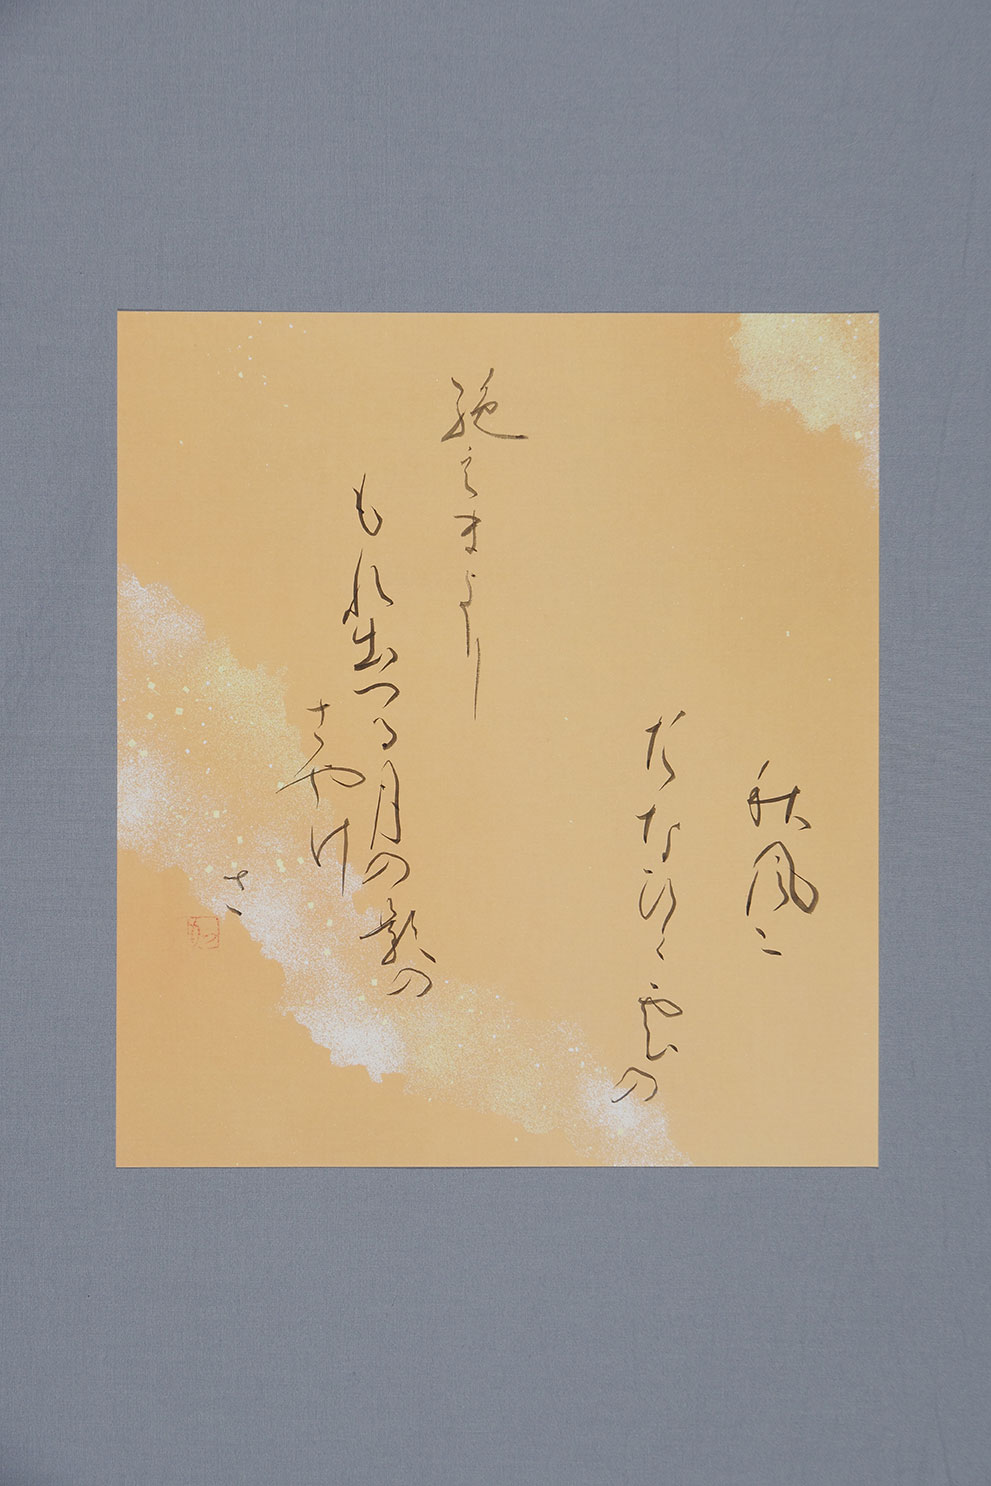 秋風二
たなひく雲の
絶えまより
もれ出つる月の影の
さやけ
さ